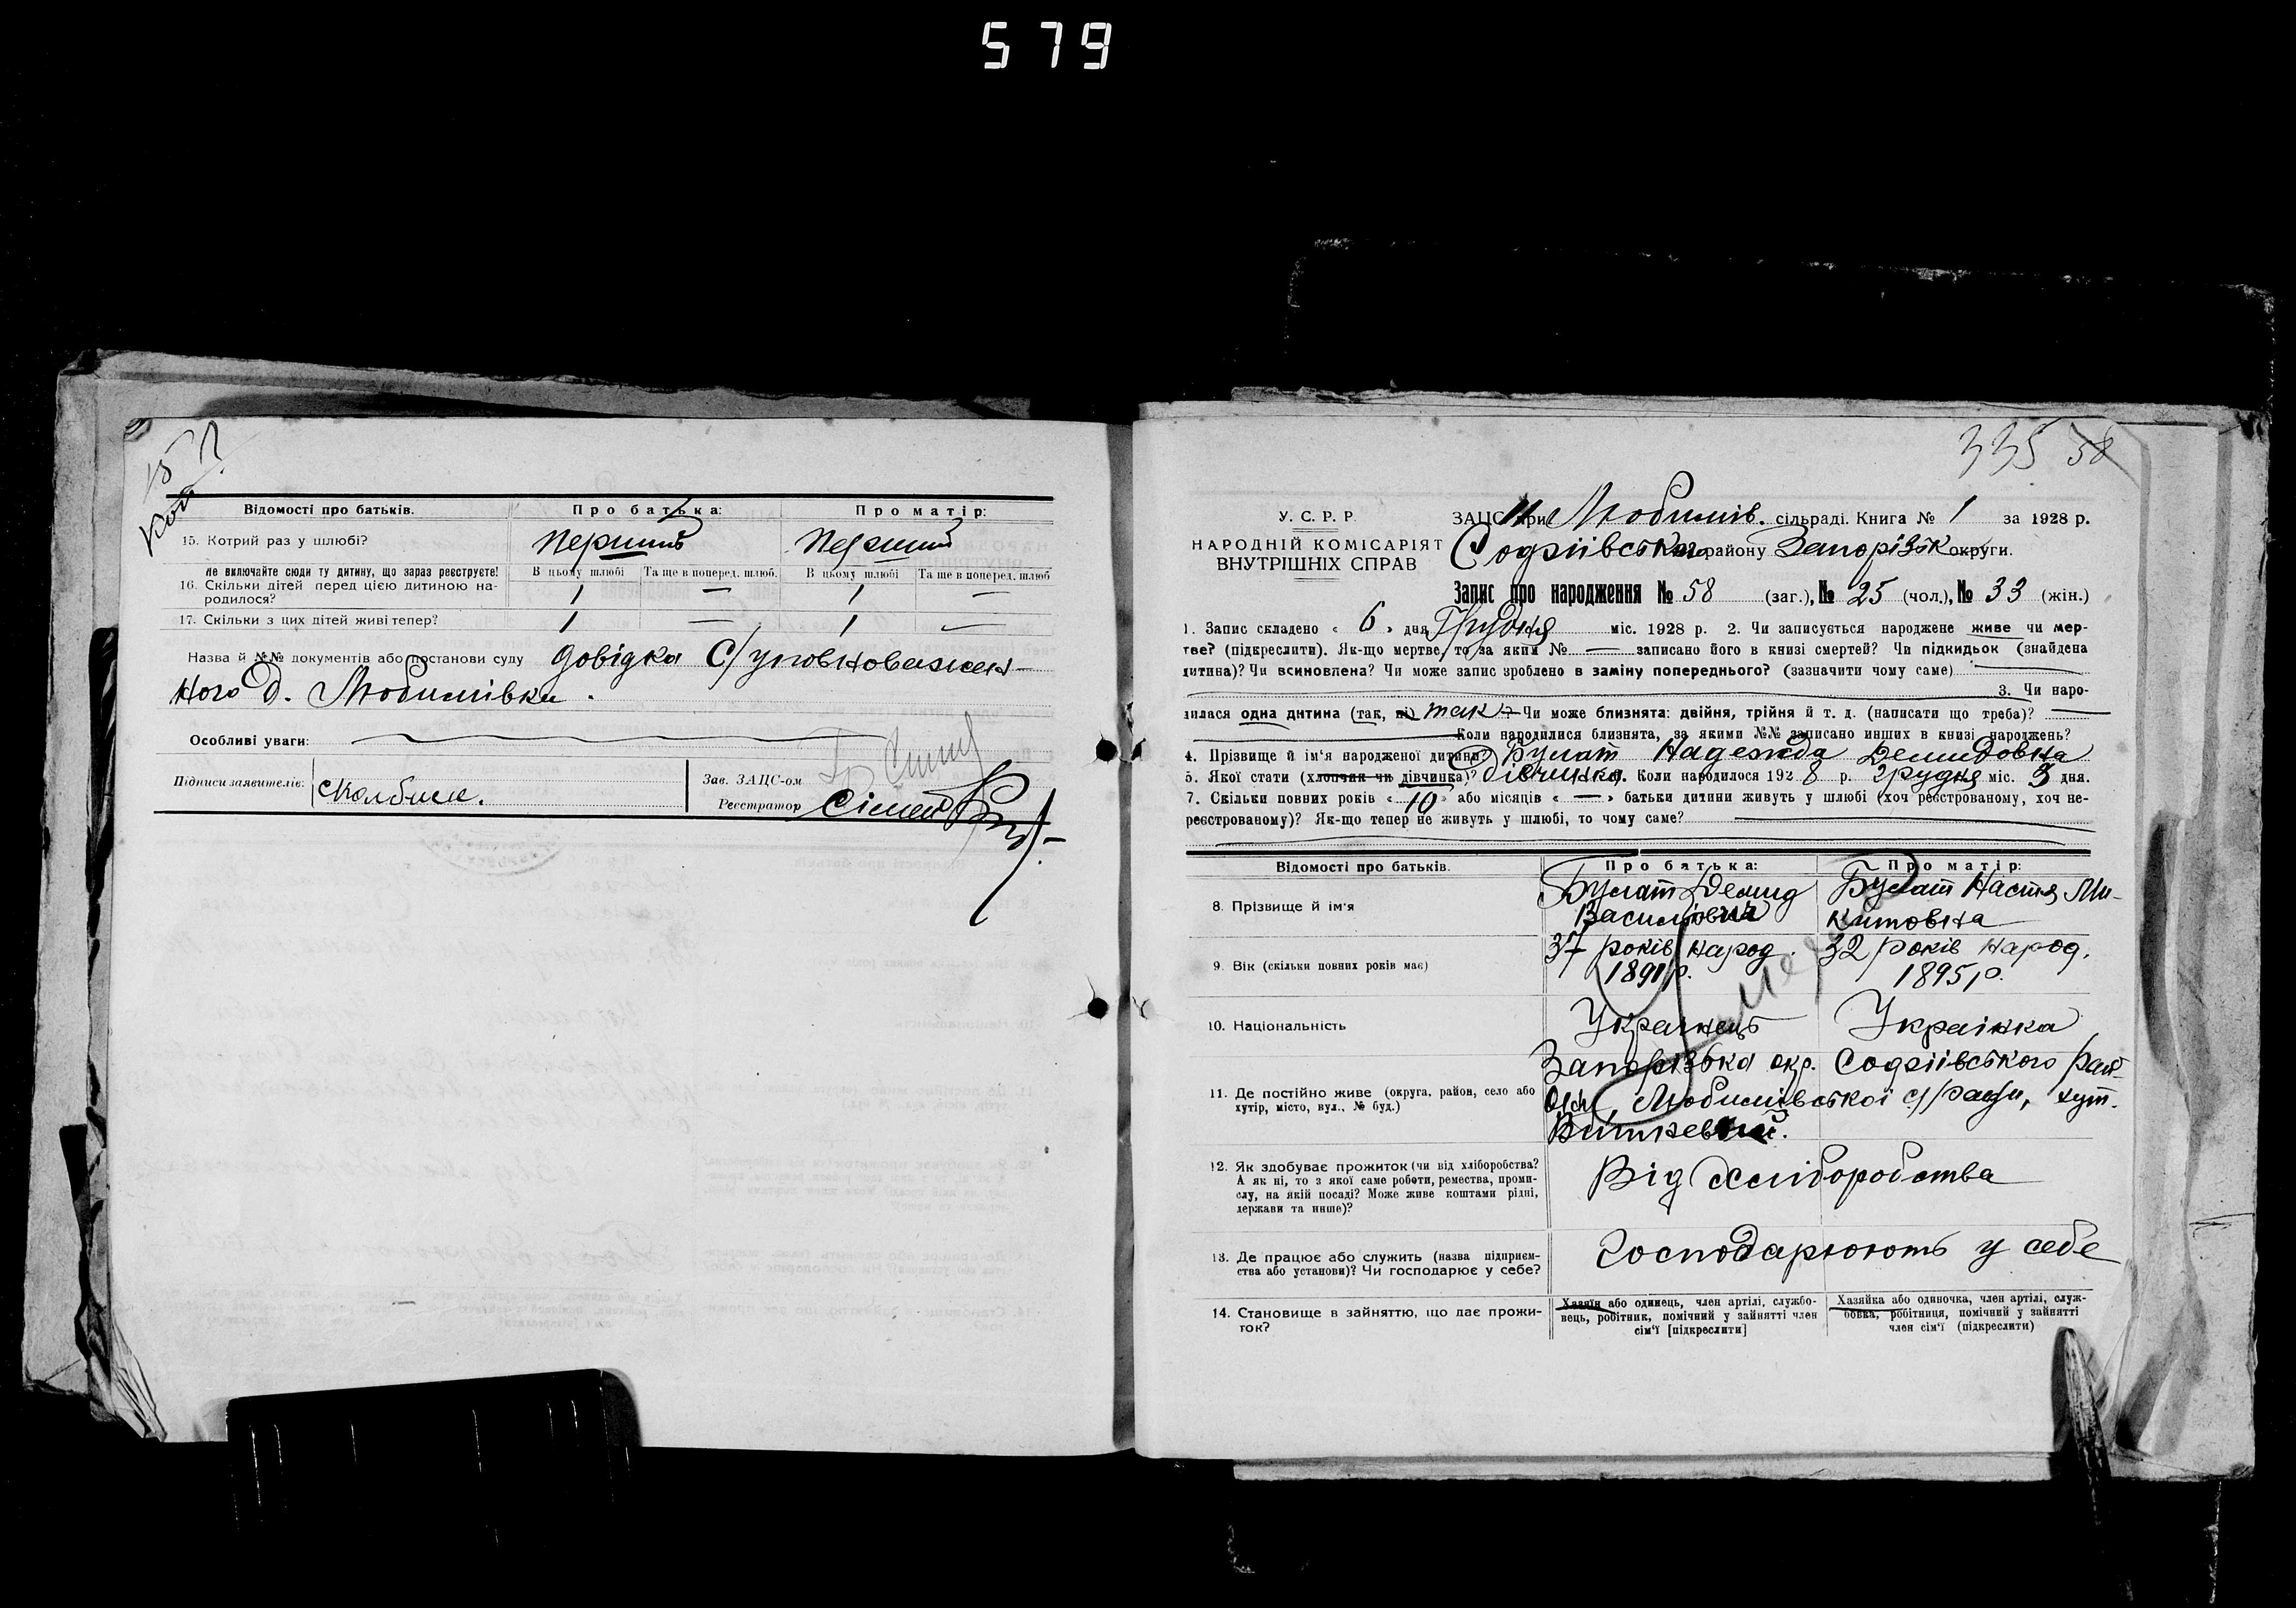 579
15
Відомості про батьків. Про батька: Про матір:
15. Котрий раз у шлюбі? Перший Перший
Не включайте сюди ту дитину, що зараз реєструєте! В цьому шлюбі Та ще в поперед. шлюб. В цьому шлюбі Та ще в поперед. шлюб
16. Скільки дітей перед цією дитиною на- 1 — 1 —
родилося?
17. Скільки з цих дітей живі тепер? 1 — 1 —
Назва й №№ документів або постанови суду довідка С/уповноважен-
ного д. Любимівки.
Особливі уваги:
Підписи заявителів: Зав. ЗАЦС-ом
Реєстратор
335 58
У. С. Р. Р. ЗАЦС при Любимів. сільраді. Книга № 1 за 1928 р.
НАРОДНІЙ КОМІСАРІЯТ Софіївського району Запорізьк округи.
ВНУТРІШНІХ СПРАВ
Запис про народження № 58 (заг.), № 25 (чол.), № 33 (жін.)
1. Запис складено « 6 » дня Грудня міс. 1928 р. 2. Чи записується народжене живе чи мер-
тве? (підкреслити). Як-що мертве, то за яким № — записано його в книзі смертей? Чи підкидьок (знайдена
дитина)? Чи всиновлена? Чи може запис зроблено в заміну попереднього? (зазначити чому саме)
3. Чи наро-
дилася одна дитина (так, ні) так — Чи може близнята: двійня, трійня й т. д. (написати що треба)? —
Коли народилися близнята, за якими №№ записано инших в книзі народжень?
4. Прізвище й ім'я народженої дитини? Булат Надежда Демидовна
5. Якої стати (хлопчик чи дівчинка)? дівчинка. Коли народилося 1928 р. грудня міс. 3 дня.
7. Скільки повних років « 10 » або місяців « — » батьки дитини живуть у шлюбі (хоч реєстрованому, хоч не-
реєстрованому)? Як-що тепер не живуть у шлюбі, то чому саме?
Відомості про батьків. Про батька: Про матір:
8. Прізвище й ім'я Булат Демид Булат Настя Ми-
Васильович китовна
9. Вік (скільки повних років має) 37 років народ. 32 років народ.
1891 р. 1895 р.
10. Національність Українець Українка
11. Де постійно живе (округа, район, село або Запорізька окр. Софіївського рай-
хутір, місто, вул., № буд.) Любимівської с/ради, хут.
12. Як здобуває прожиток (чи від хліборобства? Від хліборобства
А як ні, то з якої саме роботи, ремества, проми-
слу, на якій посаді? Може живе коштами рідні,
держави та инше)?
13. Де працює або служить (назва підприєм- Господарюють у себе
ства або установи)? Чи господарює у себе?
14. Становище в зайняттю, що дає прожи- Хазяїн або одинець, член артілі, службо- Хазяйка або одиночка, член артілі, служ-
ток? вець, робітник, помічний у зайнятті член бовка, робітниця, помічний у зайнятті
сім'ї [підкреслити] член сім'ї (підкреслити)